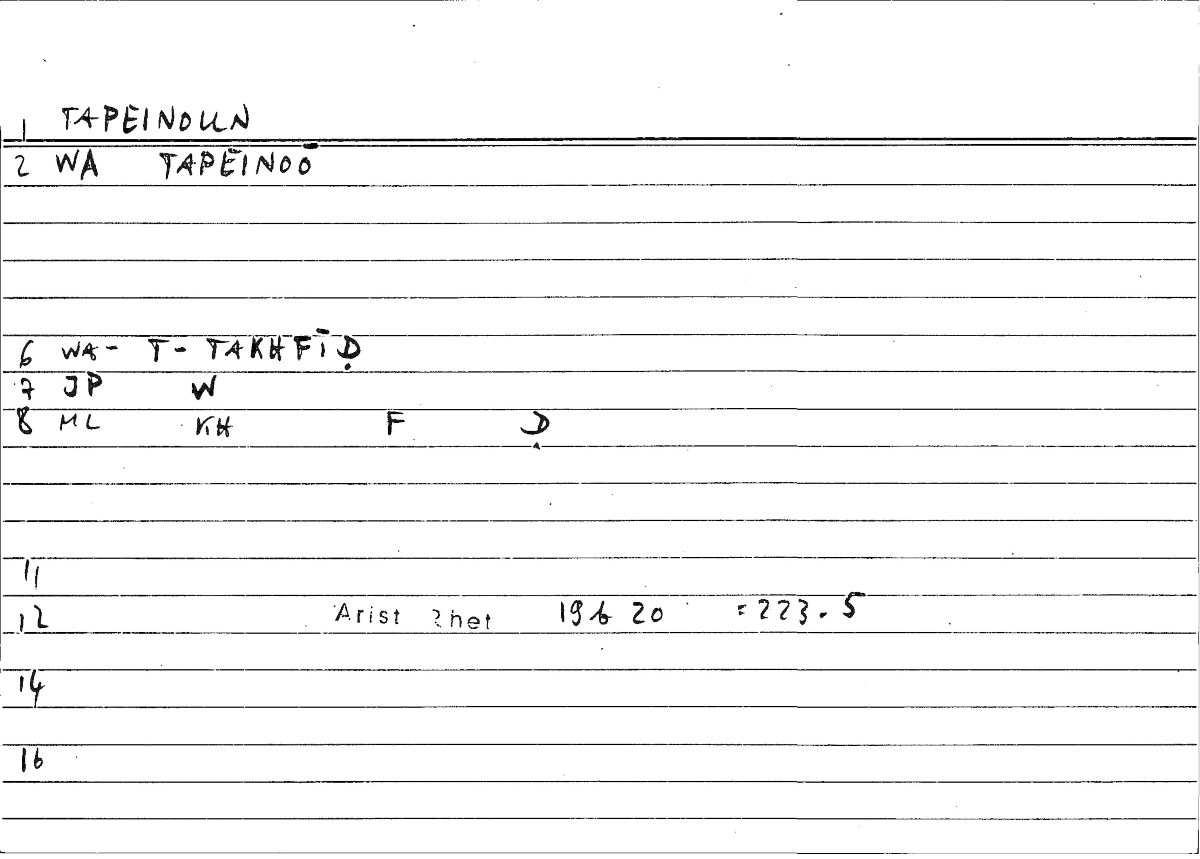 1 TAPEINOUN
2 WA TAPEINOŌ
6 WA- T- TAKHFĪḌ
7 JP W
8 ML KH F Ḍ
11
12 Arist Rhet 19b 20 =223.5
14
16